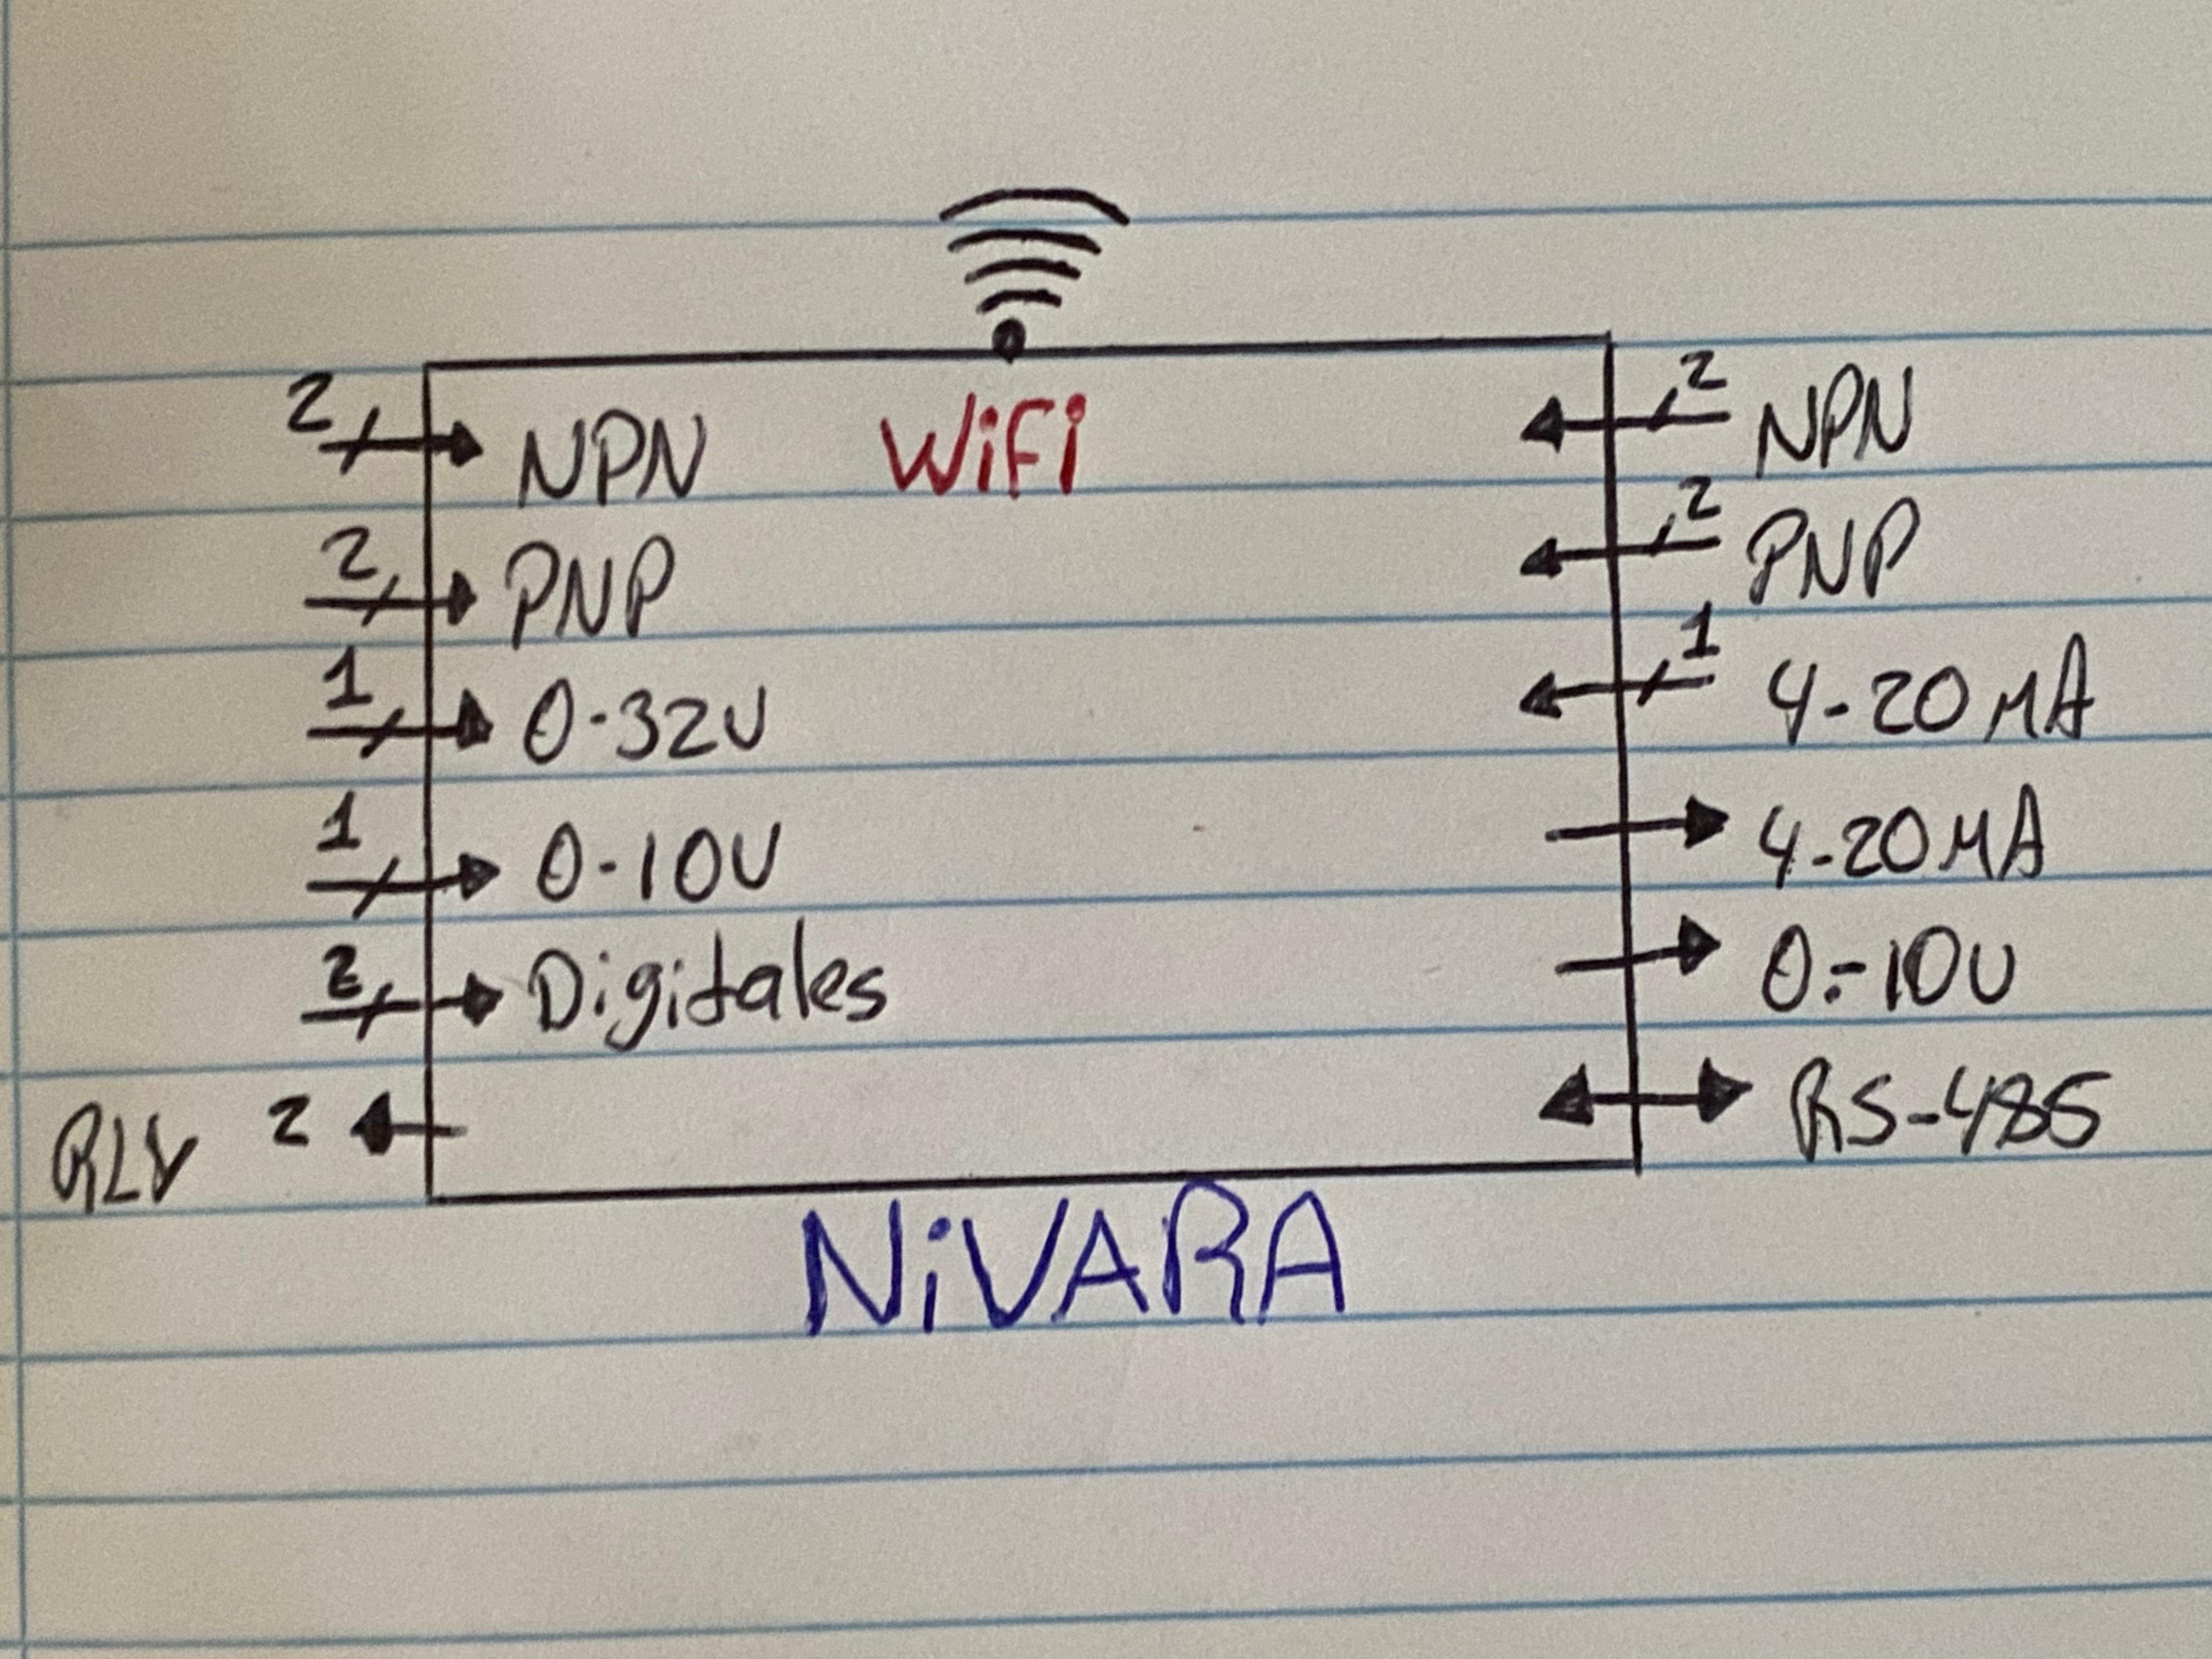 WiFi
2 NPN
2 PNP
1 0-32V
1 0-10V
2 Digitales
RLY 2
2 NPN
2 PNP
1 4-20 mA
4-20 mA
0-10V
RS-485
NiVARA